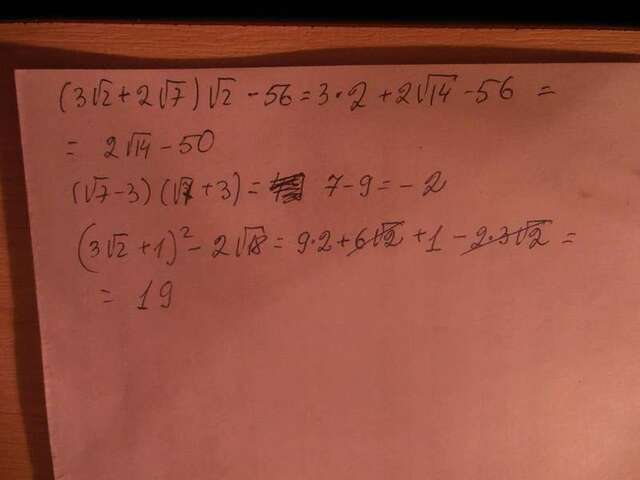 (3√2 + 2√7)√2 - 56 = 3·2 + 2√14 - 56 =
= 2√14 - 50
(√7 - 3)(√7 + 3) = 7 - 9 = -2
(3√2 + 1)² - 2√18 = 9·2 + 6√2 + 1 - 2·3√2 =
= 19